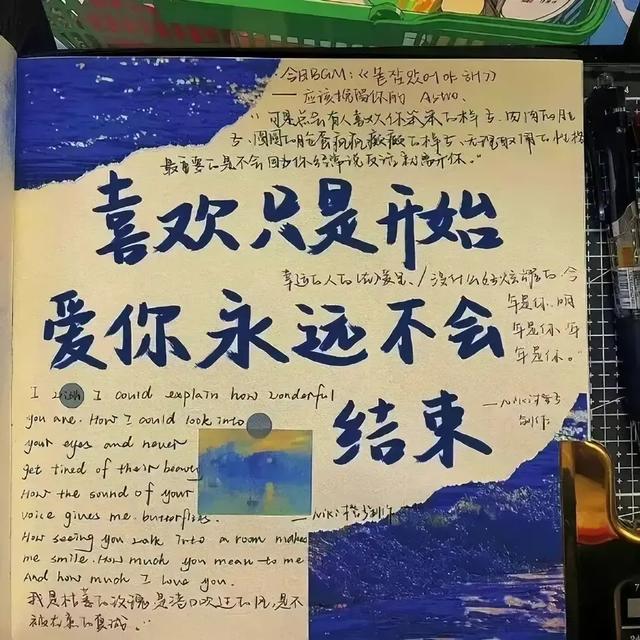 今日BGM:《
应该挽留你的 
"可是总会有人喜欢你笨笨的样子、肉肉的肚
子、圆圆的脸蛋疯疯癫癫的样子、无理取闹的性格
最重要的是不会因为你经常说反话就离开你。"
喜欢只是开始
幸运的人 /没什么好炫耀的、今
年是你、明
年是你、年
年是你。"
爱你永远不会
结束
I wish I could explain how wonderful
you are. How I could look into
your eyes and never
get tired of their beauty
How the sound of your
voice gives me butterflies.
How seeing you walk into a room makes
me smile. How much you mean to me
And how much I love you.
——Niki
制作
——Niki 制作
我是枯萎的玫瑰、是 吹过的风、是不
被 的真诚."